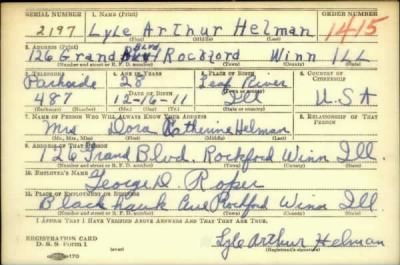 SERIAL NUMBER 1. NAME (Print) ORDER NUMBER
2197 Lyle Arthur Helman 1415
(First) (Middle) (Last)
2. ADDRESS (Print)
126 Grand Blvd. Rockford Winn ILL
(Number and street or R. F. D. number) (Town) (County) (State)
3. TELEPHONE 4. AGE IN YEARS 5. PLACE OF BIRTH 6. COUNTRY OF CITIZENSHIP
Parkside 28 Leaf River
DATE OF BIRTH
487 12-16-11 Ill U.S.A
(Exchange) (Number) (Mo.) (Day) (Yr.) (State or country)
7. NAME OF PERSON WHO WILL ALWAYS KNOW YOUR ADDRESS 8. RELATIONSHIP OF THAT PERSON
Mrs Dora Katherine Helman
(Mr., Mrs., Miss) (First) (Middle) (Last)
9. ADDRESS OF THAT PERSON
126 Grand Blvd. Rockford Winn Ill.
(Number and street or R. F. D. number) (Town) (County) (State)
10. EMPLOYER'S NAME
George D. Roper
11. PLACE OF EMPLOYMENT OR BUSINESS
Black hawk Ave Rockford Winn Ill
(Number and street or R. F. D. number) (Town) (County) (State)
I AFFIRM THAT I HAVE VERIFIED ABOVE ANSWERS AND THAT THEY ARE TRUE.
REGISTRATION CARD
D. S. S. Form 1 Lyle Arthur Helman